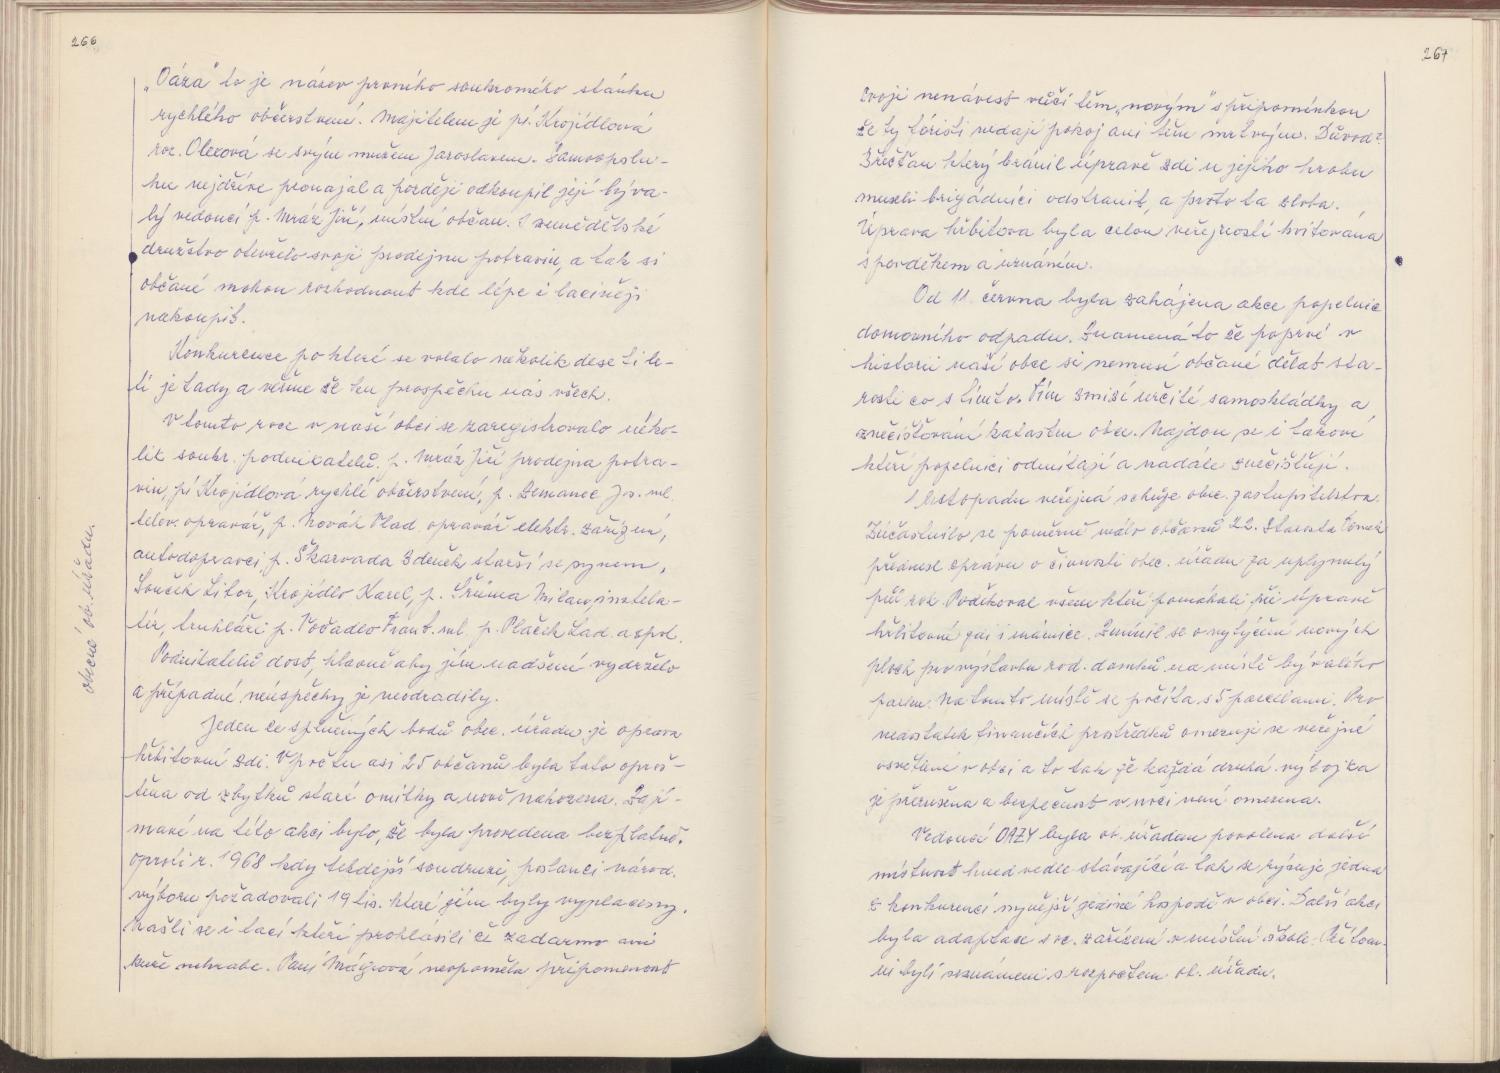 266
„Oáza" to je název prvního soukromého stánku
rychlého občerstvení. Majitelem je pí. Krojidlová
roz. Olexová se svým mužem Jaroslavem. Samoobslu-
hu nejdříve pronajal a později odkoupil její býva-
lý vedoucí p. Mráz Jiří, místní občan. I zemědělské
družstvo otevřelo svoji prodejnu potravin, a tak si
občané mohou rozhodnout kde lépe i laciněji
nakoupit.
Konkurence po které se volalo několik deseti le-
tí je tady a věříme že ku prospěchu nás všech.
V tomto roce v naší obci se zaregistrovalo něko-
lik soukr. podnikatelů. p. Mráz Jiří prodejna potra-
vin, pí Krojidlová rychlé občerstvení, p. Zemanec Js. ml.
telev. opravář, p. Novák Vlad opravář elektr. zařízení,
autodopravci p. Škarvada Zdeněk starší se synem,
Souček Libor, Krojidlo Karel, p. Šrůma Milan, instala-
tér, truhláři p. Vočadlo Frant. ml. p. Plaček Lad. a spol.
Podnikatelů dost, hlavně aby jim nadšení vydrželo
a případné neúspěchy je neodradily.
Jeden ze splněných bodů obec. úřadu je oprava
hřbitovní zdi. V počtu asi 25 občanů byla tato oproš-
těna od zbytků staré omítky a nově nahozena. Zají-
mavé na této akci bylo, že byla provedena bezplatně.
oproti r. 1968 kdy tehdejší soudruzi, poslanci národ.
výboru požadovali 19 tis. které jim byly vyplaceny.
Našli se i tací kteří prohlásili že zadarmo ani
kuře nehrabe. Paní Mágrová neopoměla připomenout
obecné ob. úřadu.
267
svoji nenávist vůči těm „novým" s připomínkou
že ty tóristi nedají pokoj ani těm mrtvým. Důvod?
Břečťan který bránil úpravě zdi u jejího hrobu
museli brigádníci odstranit, a proto ta zloba.
Úprava hřbitova byla celou veřejností kvitována
s povděkem a uznáním.
Od 11. června byla zahájena akce popelnic
domovního odpadu. Znamená to že poprvé v
historii naší obce si nemusí občané dělat sta-
rosti co s tímto. Tím zmizí určité samoskládky a
znečišťování katastru obce. Najdou se i takoví
kteří popelnici odmítají a nadále znečišťují.
listopadu veřejná schůze obec. zastupitelstva.
Zúčastnilo se poměrně málo občanů 22. Starosta
přednesl zprávu o činnosti obec. úřadu za uplynulý
půl rok. Poděkoval všem kteří pomáhali při úpravě
hřbitovní zdi i márnice. Zmínil se o vytýčení nových
ploch pro výstavbu rod. domků na místě bývalého
parku. Na tomto místě se počítá s 5 parcelami. Pro
nedostatek finančích prostředků omezuje se veřejné
osvětlení v obci a to tak že každá druhá výbojka
je přerušena a bezpečnost v noci není omezena.
Vedoucí OAZY byla ob. úřadem povolena další
místnost hned vedle stávající a tak se rýsuje jedna
z konkurencí nynější jediné hospodě v obci. Další akcí
byla adaptace soc. zařízení v místní škole. Přítom-
ni byli seznámeni s rozpočtem ob. úřadu.